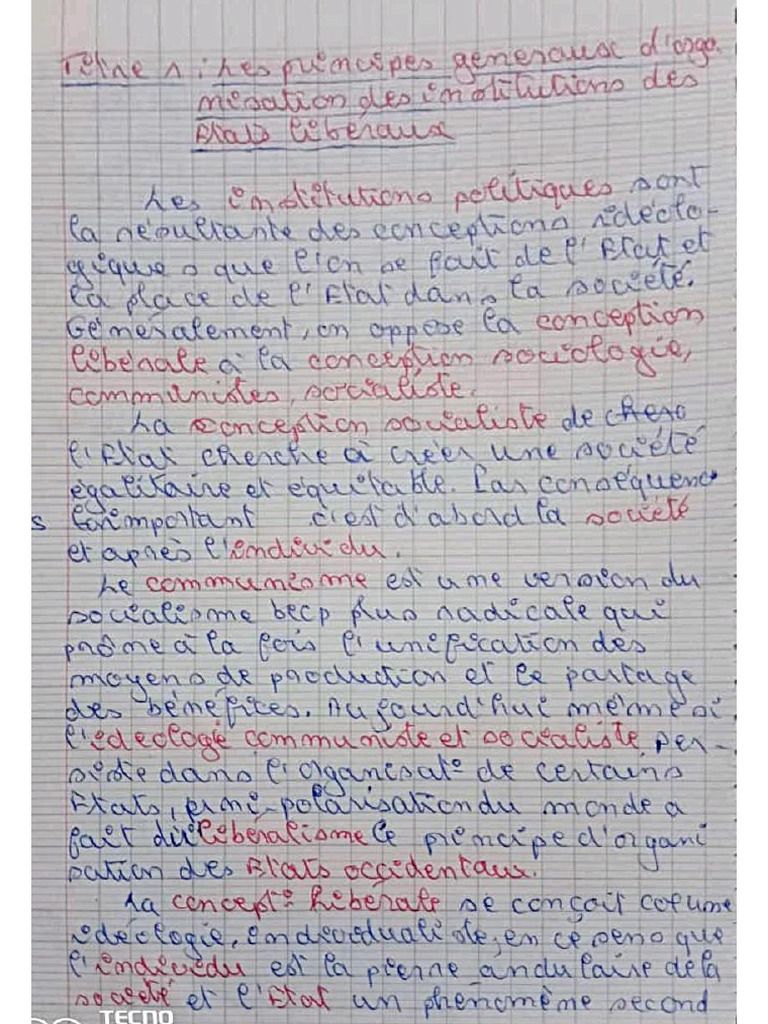 Titre 1 : Les principes generaux d'orga
nisation des institutions des
Etats liberaux
Les institutions politiques sont
la résultante des conceptions idéolo-
giques que l'on se fait de l'Etat et
la place de l'Etat dans la société.
Généralement, on oppose la conception
libérale à la conception sociologie,
communistes, socialiste.
La conception socialiste de chero
l'Etat cherche à créer une société
égalitaire et équitable. Par conséquenc
s l'important c'est d'abord la société
et après l'individu.
Le communisme est une version du
socialisme becp plus radicale qui
prône à la fois l'unification des
moyens de production et le partage
des bénéfices. Aujourd'hui même si
l'idéologie communiste et socialiste per-
siste dans l'organisat° de certains
Etats, polarisation du monde a
fait du libéralisme le principe d'organi
sation des Etats occidentaux.
La concept° libérale se conçoit comme
idéologie, individualiste, en ce sens que
l'individu est la pierre angulaire de la
société et l'Etat un phénomème second
TECNO